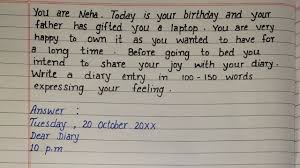 You are Neha. Today is your birthday and your
father has gifted you a laptop. You are very
happy to own it as you wanted to have for
a long time. Before going to bed you
intend to share your joy with your diary.
Write a diary entry in 100-150 words
expressing your feeling.
Answer :
Tuesday, 20 October 20XX
Dear Diary
10 p.m